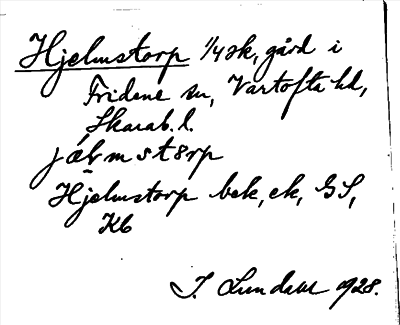 Hjelmstorp 1/4 sk, gård i
Fridene sn, Vartofta hd,
Skarab. l.
Hjelmstorp bek, ek, GS,
Kb
J. Lundahl 1928.